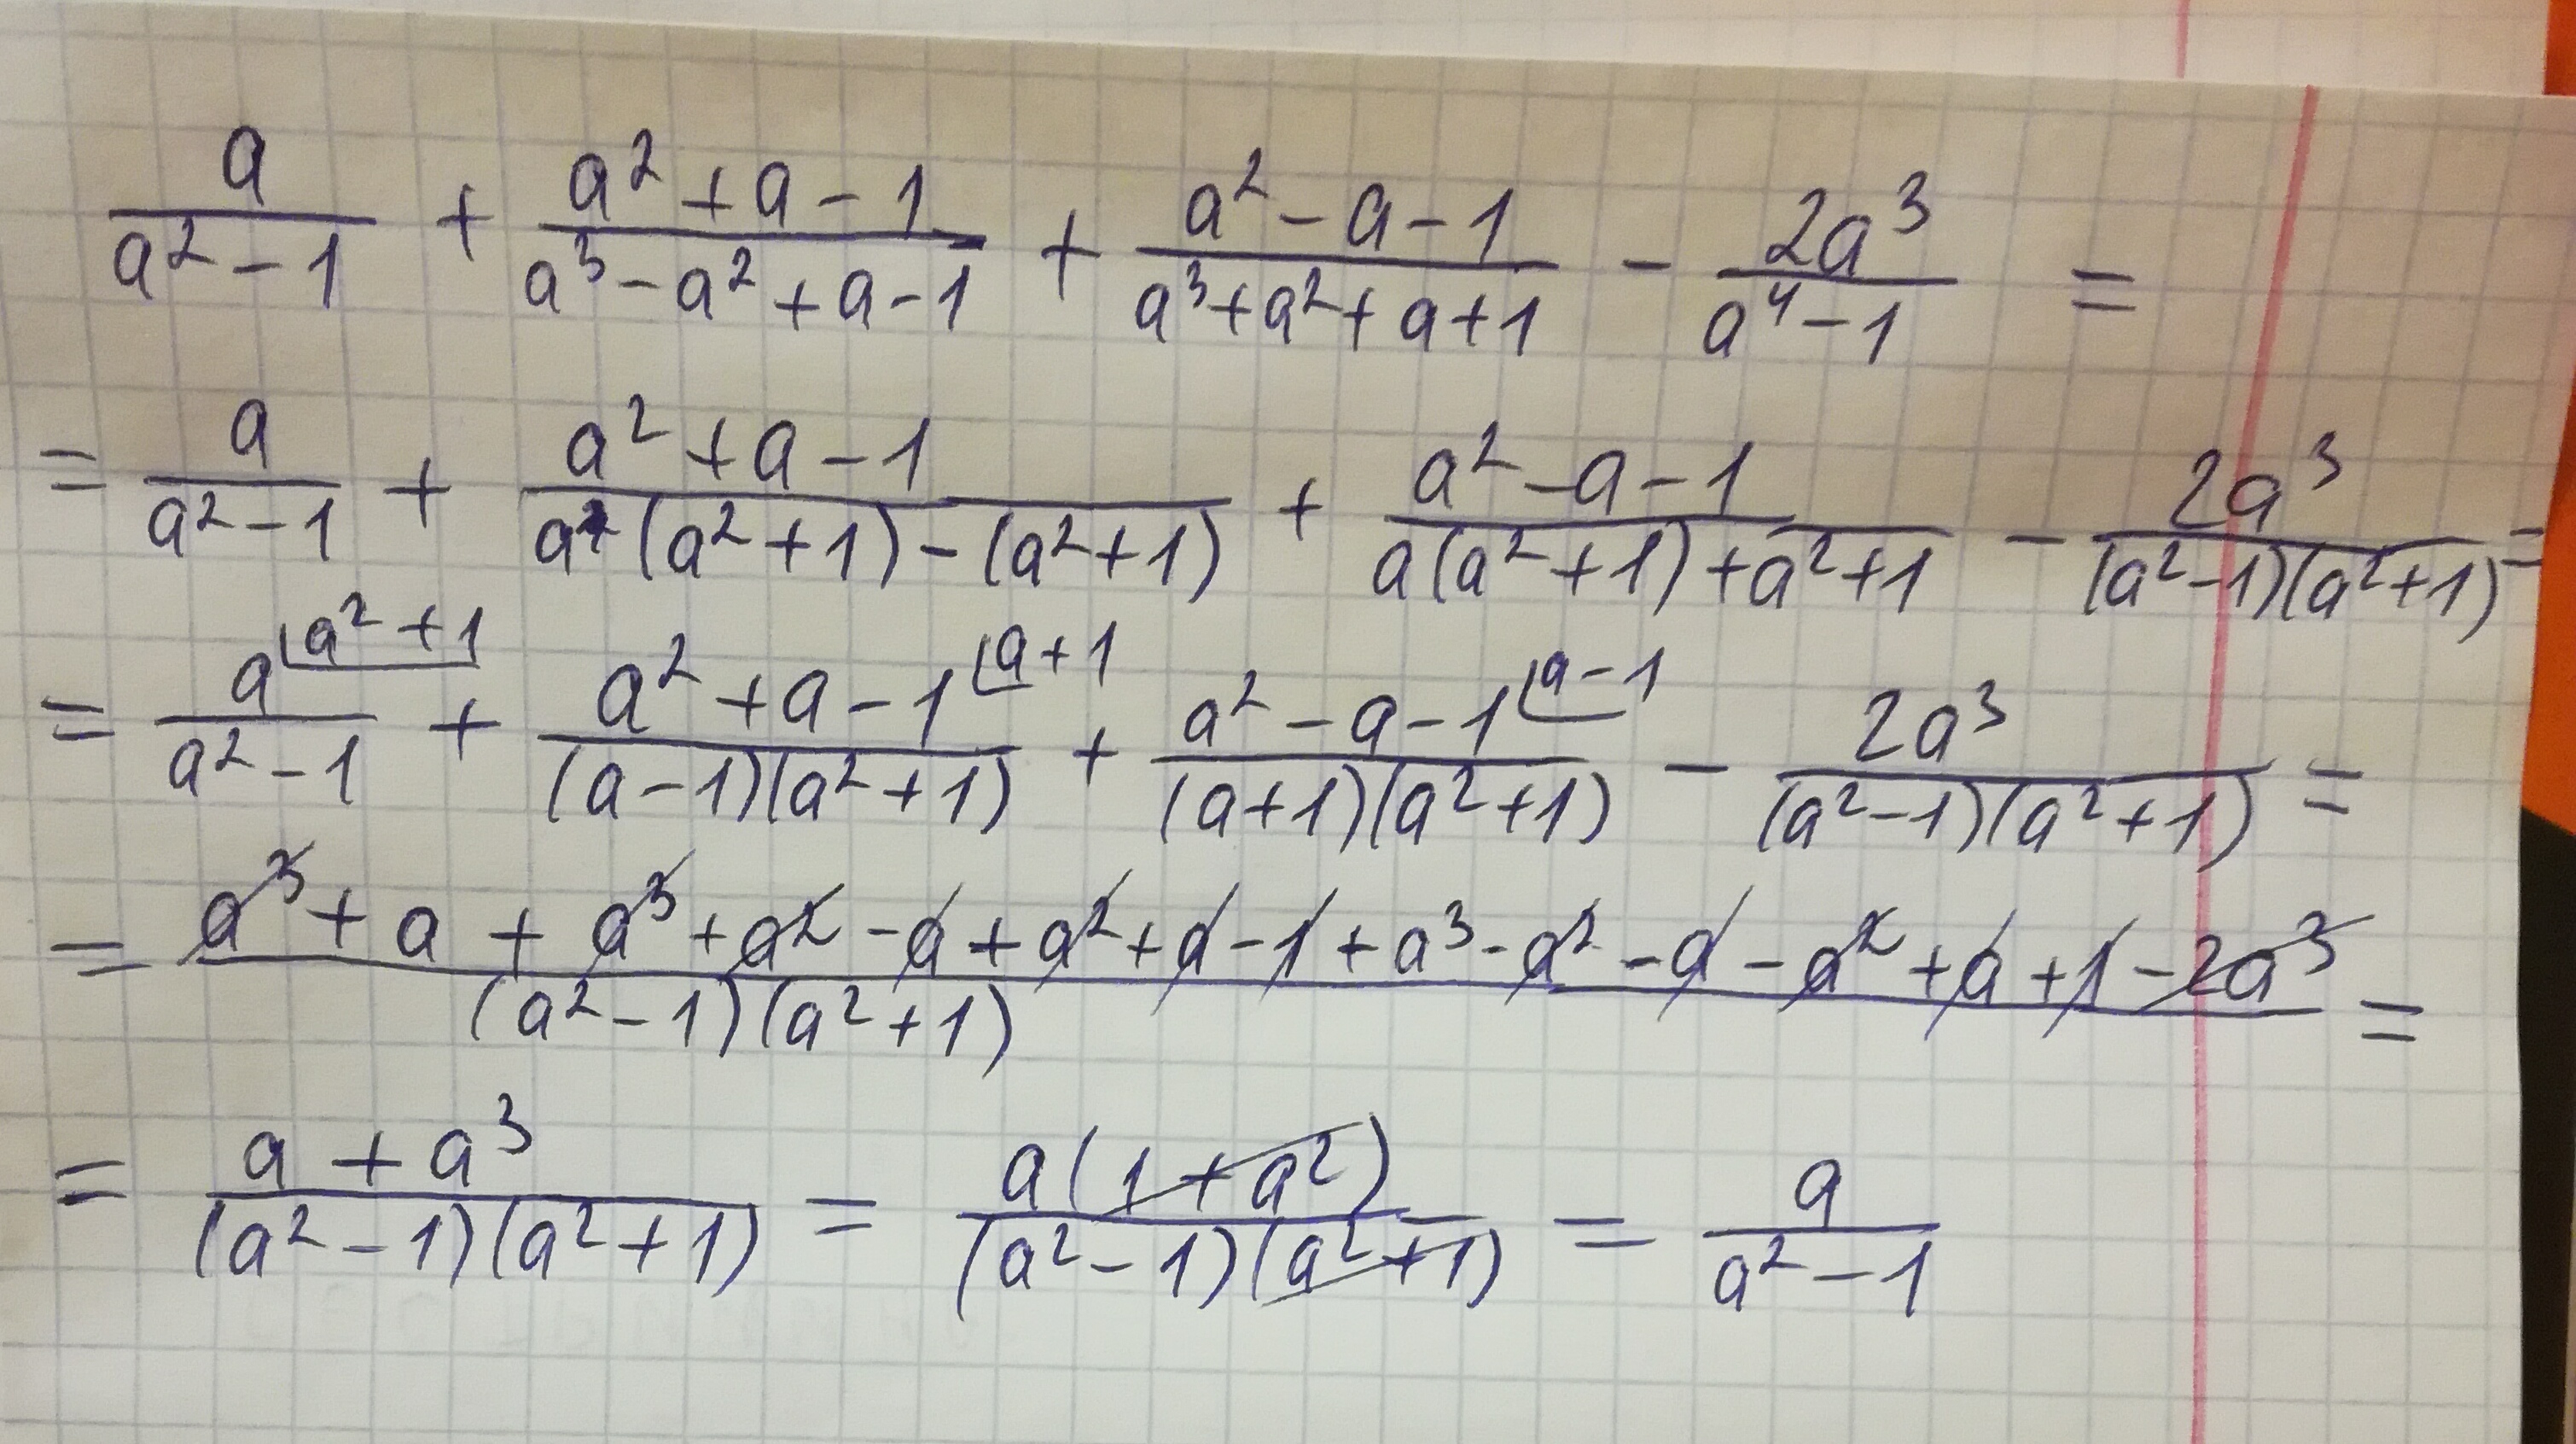 a/(a² - 1) + (a² + a - 1)/(a³ - a² + a - 1) + (a² - a - 1)/(a³ + a² + a + 1) - 2a³/(a⁴ - 1) =
= a/(a² - 1) + (a² + a - 1)/(a(a² + 1) - (a² + 1)) + (a² - a - 1)/(a(a² + 1) + a² + 1) - 2a³/((a² - 1)(a² + 1)) =
= a⌊a² + 1/(a² - 1) + (a² + a - 1)⌊a + 1/((a - 1)(a² + 1)) + (a² - a - 1)⌊a - 1/((a + 1)(a² + 1)) - 2a³/((a² - 1)(a² + 1)) =
= (a³ + a + a³ + a² - a + a² + a - 1 + a³ - a² - a - a² + a + 1 - 2a³)/((a² - 1)(a² + 1)) =
= (a + a³)/((a² - 1)(a² + 1)) = a(1 + a²)/((a² - 1)(a² + 1)) = a/(a² - 1)